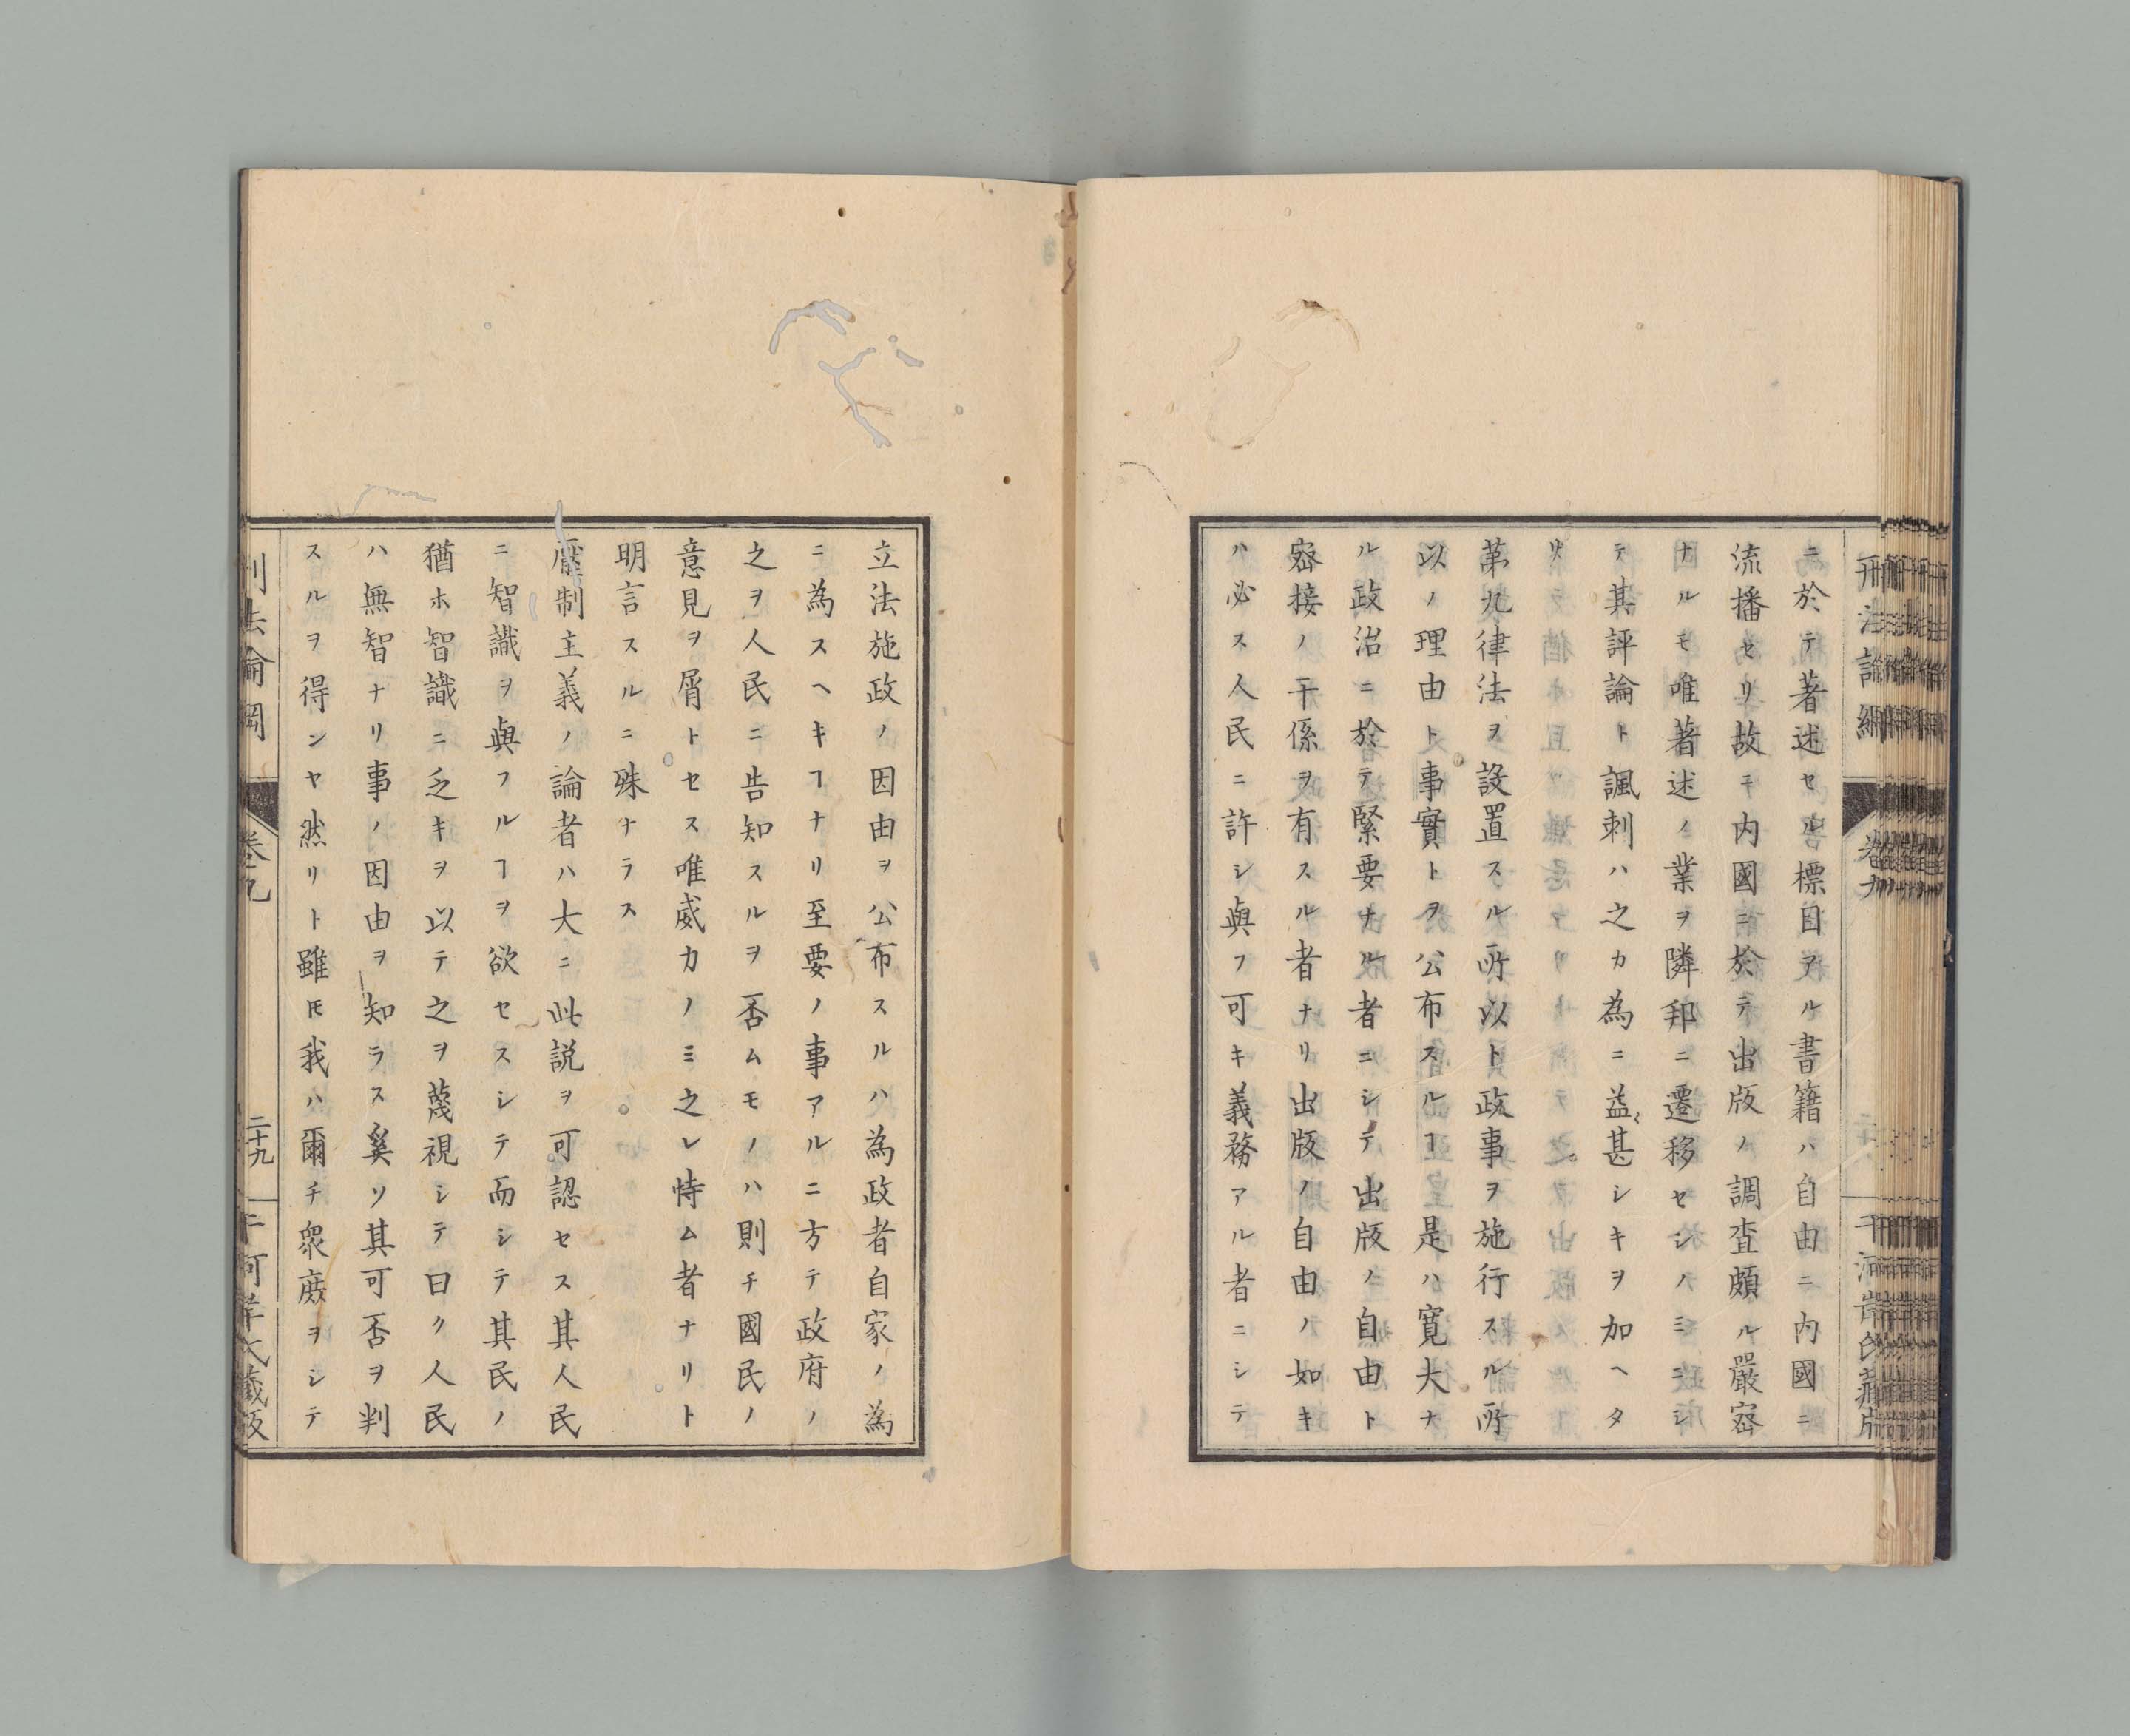 ニ於テ著述セル標目アル書籍ハ自由ニ内國ニ
流播セリ故ニ内國ニ於テ出版ノ調査頗ル嚴密
ナルモ唯著述ノ業ヲ隣邦ニ遷移セシノミニシ
テ其評論ト諷刺ハ之カ為ニ益〻甚シキヲ加ヘタ
リ
第九律法ヲ設置スル所以ト政事ヲ施行スル所
以ノ理由ト事實トヲ公布スルヿ是ハ寛大ナ
ル政治ニ於テ緊要ナル者ニシテ出版ノ自由ト
密接ノ干係ヲ有スル者ナリ出版ノ自由ノ如キ
ハ必ス人民ニ許シ與フ可キ義務アル者ニシテ
立法施政ノ因由ヲ公布スルハ為政者自家ノ為
ニ為スヘキヿナリ至要ノ事アルニ方テ政府ノ
之ヲ人民ニ告知スルヲ否ムモノハ則チ國民ノ
意見ヲ屑トセス唯威力ノミ之レ恃ム者ナリト
明言スルニ殊ナラス
壓制主義ノ論者ハ大ニ此説ヲ可認セス其人民
ニ智識ヲ與フルヿヲ欲セスシテ而シテ其民ノ
猶ホ智識ニ乏キヲ以テ之ヲ蔑視シテ曰ク人民
ハ無智ナリ事ノ因由ヲ知ラス奚ソ其可否ヲ判
スルヲ得ンヤ然リト雖𪜈我ハ爾チ衆庶ヲシテ
刑法論綱
卷之九
二十九